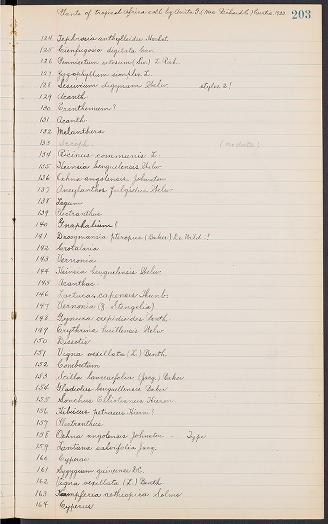 Plants of tropical Africa coll. by Anita G. (Mrs. Richard C.) Curtis. 1923 203
124 Tephrosia anthylloides Hochst.
125 Cienfuegosia digitata Cav.
126 Pennisetum setosum (Sw.) L. Rich.
127 Zygophyllum simplex L.
128 Sesuvium digynum Welw. styles 2!
129 Acanth.
130 Eranthemum?
131 Acanth.
132 Melanthera
133 Scroph.
134 Ricinus communis L.
135 benguelensis Welw.
136 Ochna angolensis Johnston
137 fulgidus Welw.
138 Legum.
139 Plectranthus
140 Gnaphalium!
141 pteropus (Baker) De Wild.!
142 Crotalaria
143 Vernonia
144 benguelensis Welw.
145 Acanthac.
146 Lactuca capensis Thunb.
147 Vernonia (§ Stengelia)
148 Gynura crepidioides Benth.
149 Erythrina huillensis Welw.
150 Dissotis
151 Vigna vexillata (L.) Benth.
152 Combretum
153 Scilla lanceaefolia (Jacq.) Baker
154 Gladiolus benguellensis Baker
155 Sonchus Elliotianus Hieron.
156 Hibiscus Hiern!
157 Plectranthus
158 Ochna angolensis Johnston - Type
159 Lantana salvifolia Jacq.
160 Cyperac.
161 Syzygium guineense DC.
162 Vigna vexillata (L.) Benth.
163 Kaempferia aethiopica Solms
164 Cyperus